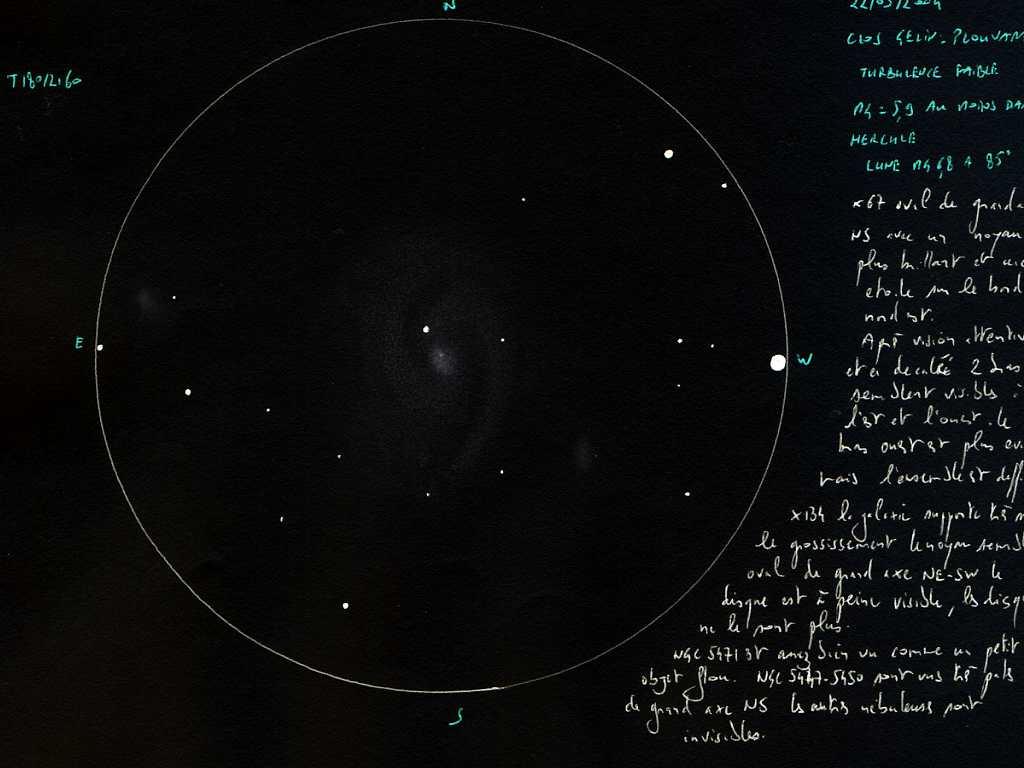 N
22/05/2004
T180/2160
CLOS GELIN-PLOUVAN
TURBULENCE FAIBLE
MG = 5,9 AU MOINS DA
HERCULE
LUNE
x67 oval de grand
NS avec un noyau
plus brillant et
etoile sur le bord
nord est.
Apré vision attentiv
et en decallée 2 bras
semblent visibles à
l'est et l'ouest. le
bras ouest est plus ev
mais l'ensemble st diff
x134 la galaxie supporte tré
le grossissement le noyau sembl
oval de grand axe NE-SW le
disque est à peine visible, les disq
ne le sont plus.
NGC 5471 st assez bien vu comme un petit
objet flou. NGC 5447-5450 sont vus tré pals
de grand axe NS les autres nébuleuses sont
invisibles.
E
W
S